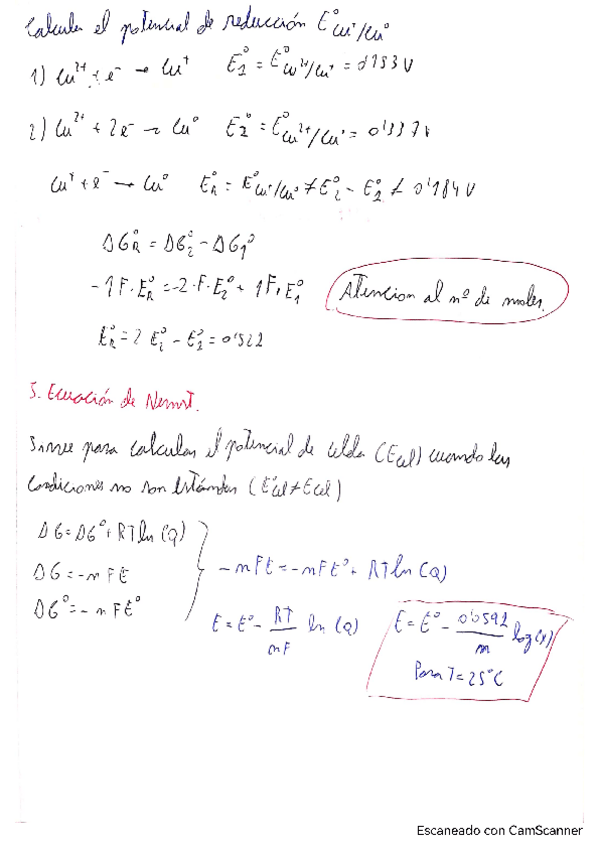 Calcula el potencial de reducción E°Cu⁺/Cu⁰
1) Cu²⁺ + e⁻ → Cu⁺ E₁° = E°Cu²⁺/Cu⁺ = 0'153 V
2) Cu²⁺ + 2e⁻ → Cu⁰ E₂° = E°Cu²⁺/Cu⁰ = 0'337 V
Cu⁺ + e⁻ → Cu⁰ E°R = E°Cu⁺/Cu⁰ ≠ E°₂ - E°₂ ≠ 0'184 V
ΔG°R = ΔG₂° - ΔG₁°
-1F·E°R = -2·F·E₂° + 1F·E₁°
Atencion al nº de moles.
E°R = 2 E°₂ - E°₂ = 0'522
5. Ecuación de Nernst.
Sirve para calcular el potencial de celda (Ecel) cuando las
condiciones no son estándar (E°cel ≠ Ecel)
ΔG = ΔG° + RT ln (Q)
ΔG = -nFE
ΔG° = -nFE°
-nFE = -nFE° + RT ln (Q)
E = E° - RT/nF ln (Q)
E = E° - 0'0592/n log(Q)
Para T = 25°C
Escaneado con CamScanner